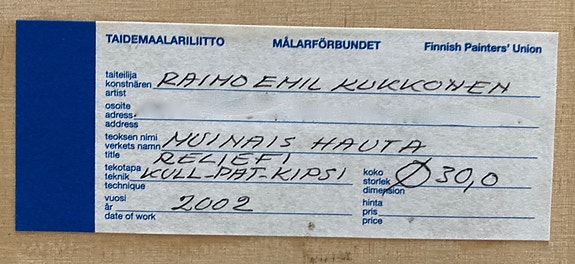 TAIDEMAALARILIITTO MÅLARFÖRBUNDET Finnish Painters' Union
taiteilija
konstnären RAIMO EMIL KUKKONEN
artist
osoite
adress
address
teoksen nimi
verkets namn MUINAIS HAUTA
title RELIEFI
tekotapa
teknik KULL-PAT-KIPSI
technique
koko
storlek Ø 30,0
dimension
vuosi
år 2002
date of work
hinta
pris
price